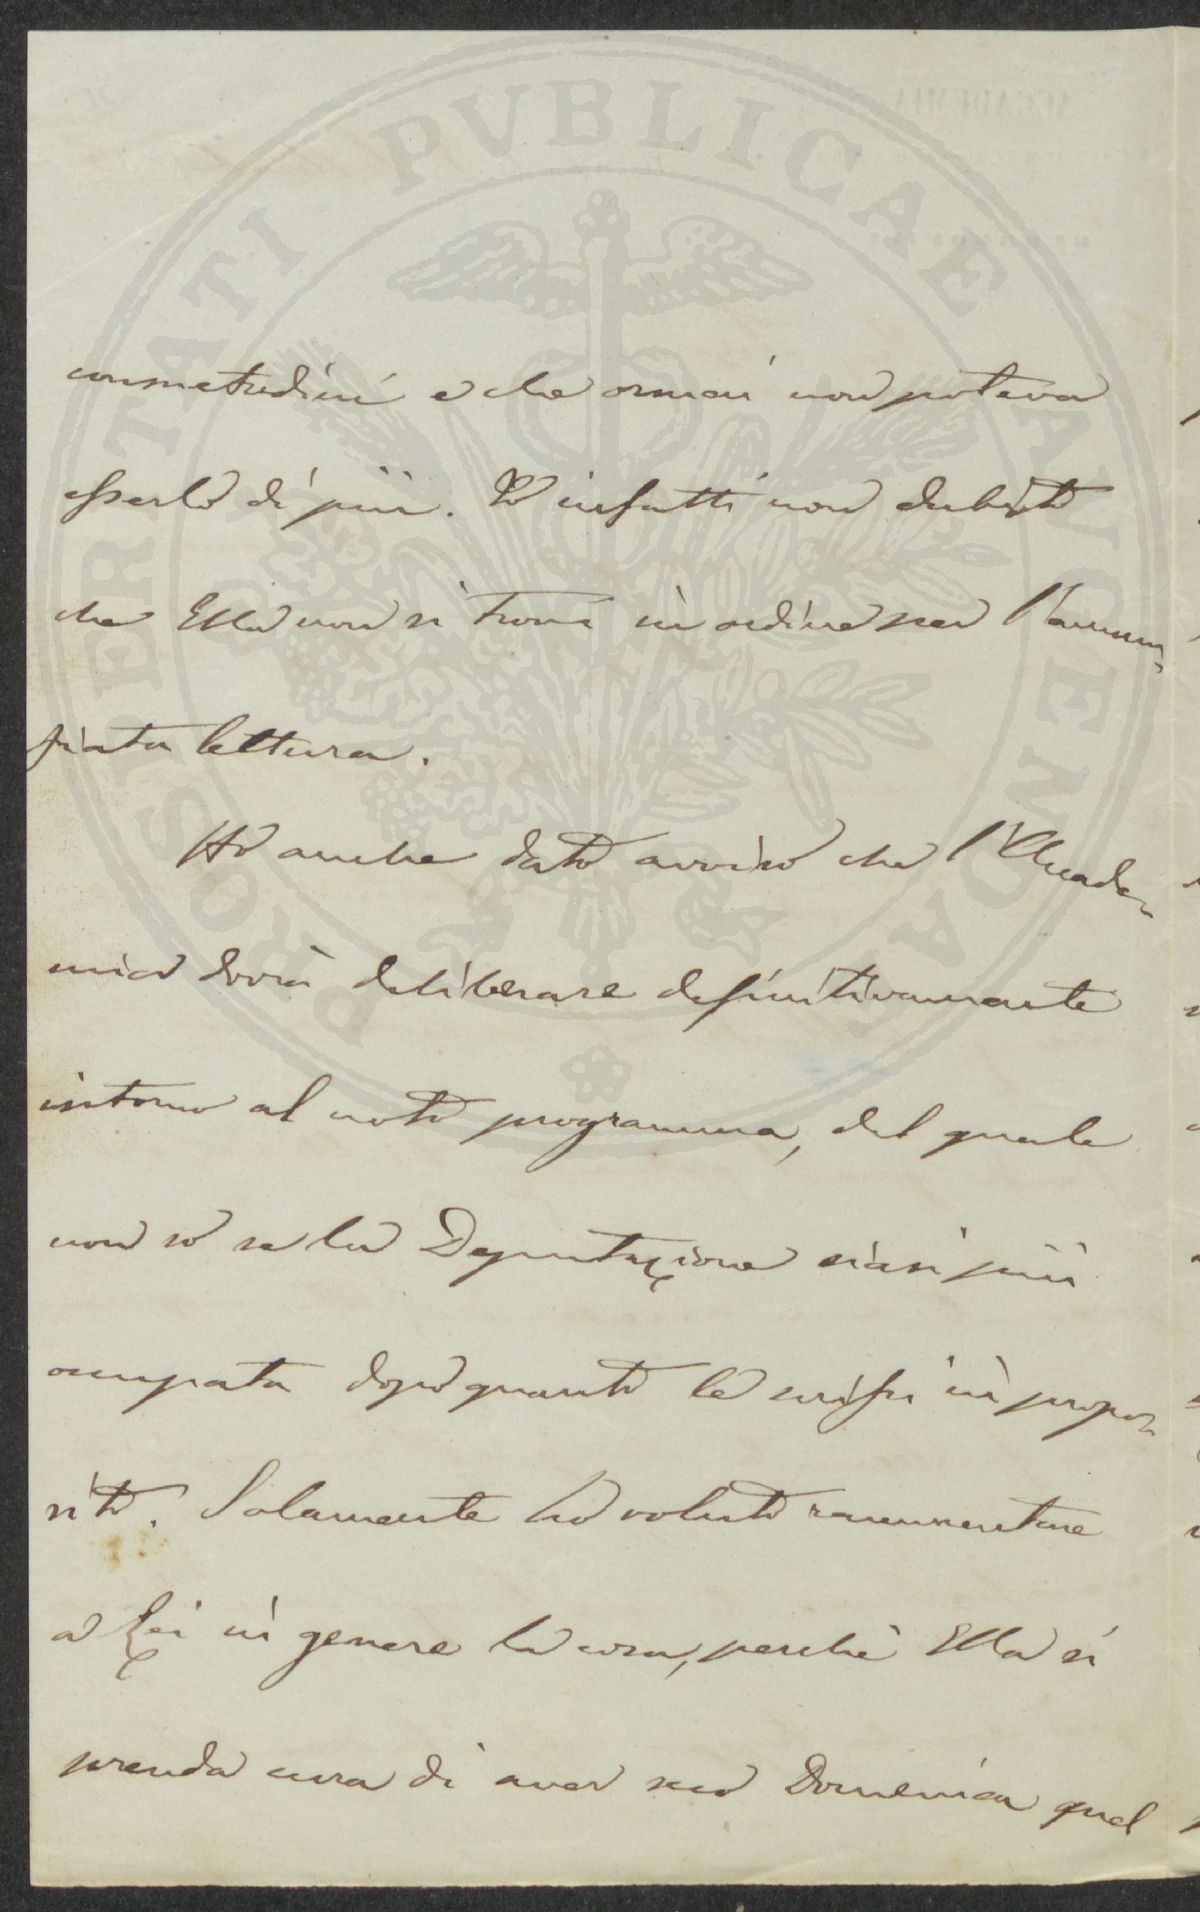 PROSPERITATI PVBLICAE AVGENDAE
consuetudini e che ormai non poteva
esserlo di più. Io infatti non dubito
che Ella non si trovi in ordine per l'annun-
ziata lettura.
Ho anche dato avviso che l'Accade-
mia dovrà deliberare definitivamente
intorno al noto programma, del quale
non so se la Deputazione siasi più
occupata dopo quanto le scrissi in propo-
sito. Solamente ho voluto rammentare
a Lei in genere la cosa, perchè Ella si
prenda cura di aver per Domenica quel